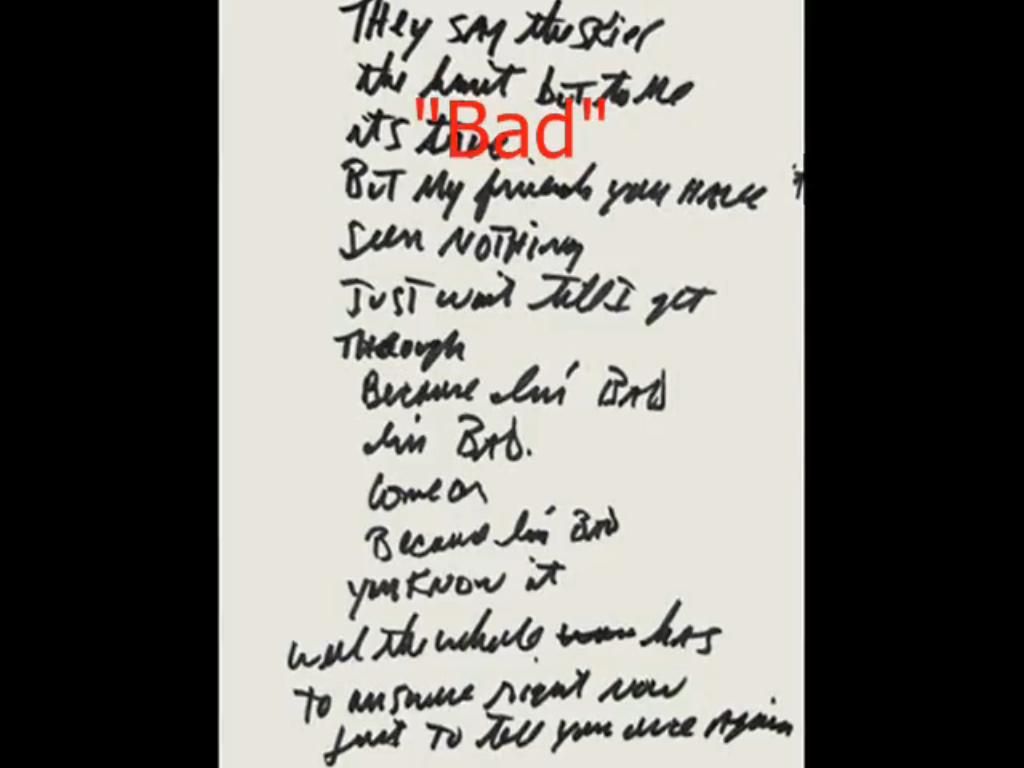 THey SAY the SKies
the limit but to Me
"Bad"
its true
BUT My friends you HAVE
Seen NOTHing
JUST wait till I get
THRough
Because Im' BAD
Im BAD.
Come on
Because Im' BAD
you KNOW it
well the whole has
To answer right now
Just To tell you once Again